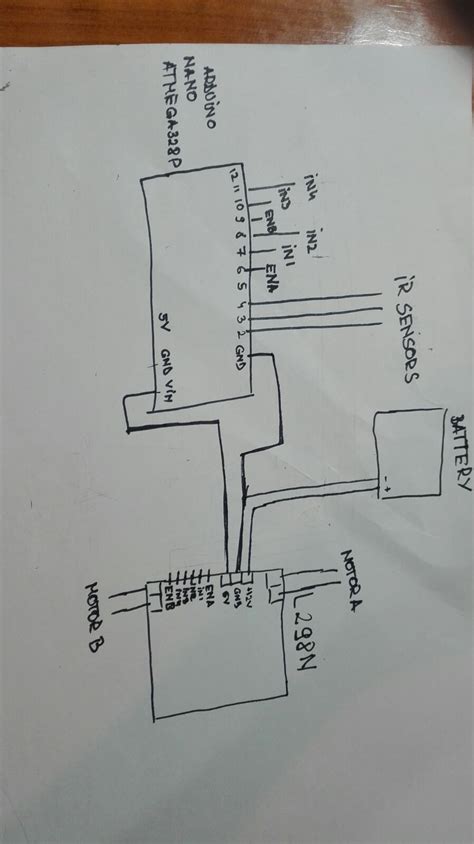 BATTERY
iR SENSORS
- +
MOTOR A
in4 in2
L298N
in3 in1
ENB ENA
12 11 10 9 8 7 6 5 4 3 2 GND
+12V
GND
5V
ARDUiNO
NANO
ATMEGA328P
ENA
in1
in2
in3
in4
ENB
5V GND ViN
MOTOR B